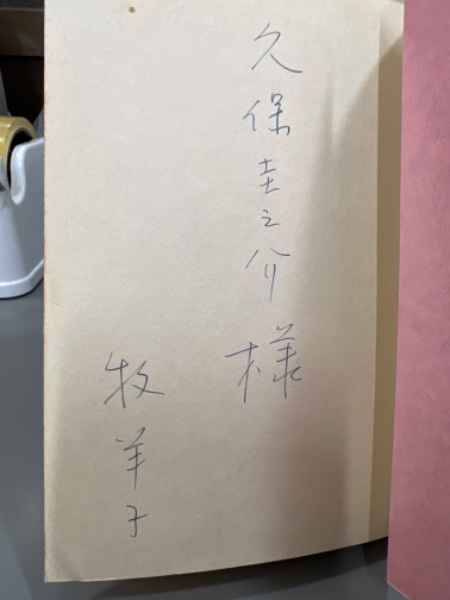 久保圭之介様
牧羊子